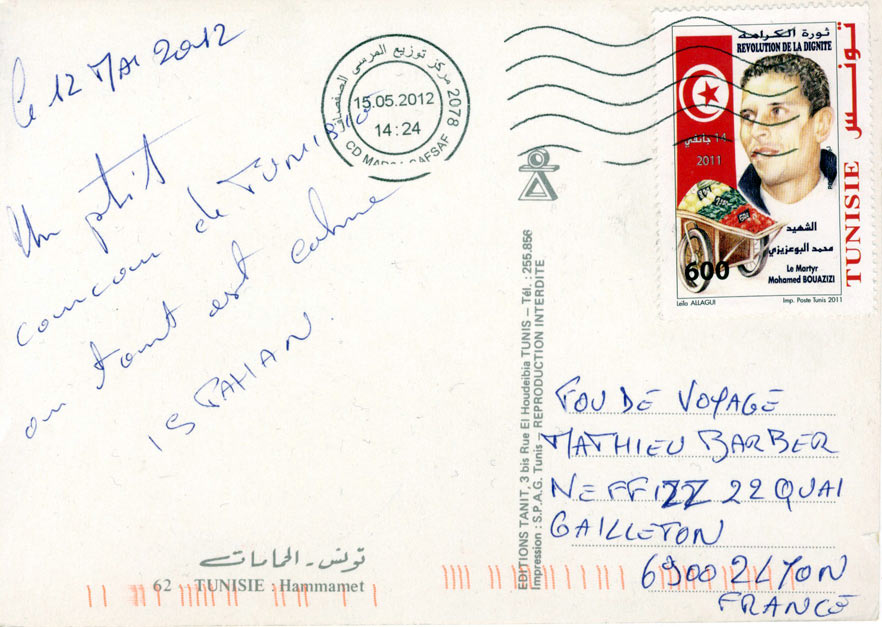 le 12 MAI 2012
Un ptit
coucou de TUNISIE
ou tout est calme
ISPAHAN.
مركز توزيع المرسى الصفصاف
15.05.2012
14:24
2078
CD MARSA SAFSAF
ثورة الكرامة
REVOLUTION DE LA DIGNITE
تونس
TUNISIE
14 جانفي
2011
الشهيد
محمد البوعزيزي
Le Martyr
Mohamed BOUAZIZI
600
Leïla ALLAGUI
Imp. Poste Tunis 2011
EDITIONS TANIT, 3 bis Rue El Houdeibia TUNIS – Tél. : 255.856
Impression : S.P.A.G. Tunis – REPRODUCTION INTERDITE
FOU DE VOYAGE
MATHIEU BARBER
NEFFIZZ 22 QUAI
GAILLETON
69002 LYON
FRANCE
تونس - الحمامات
62 TUNISIE : Hammamet